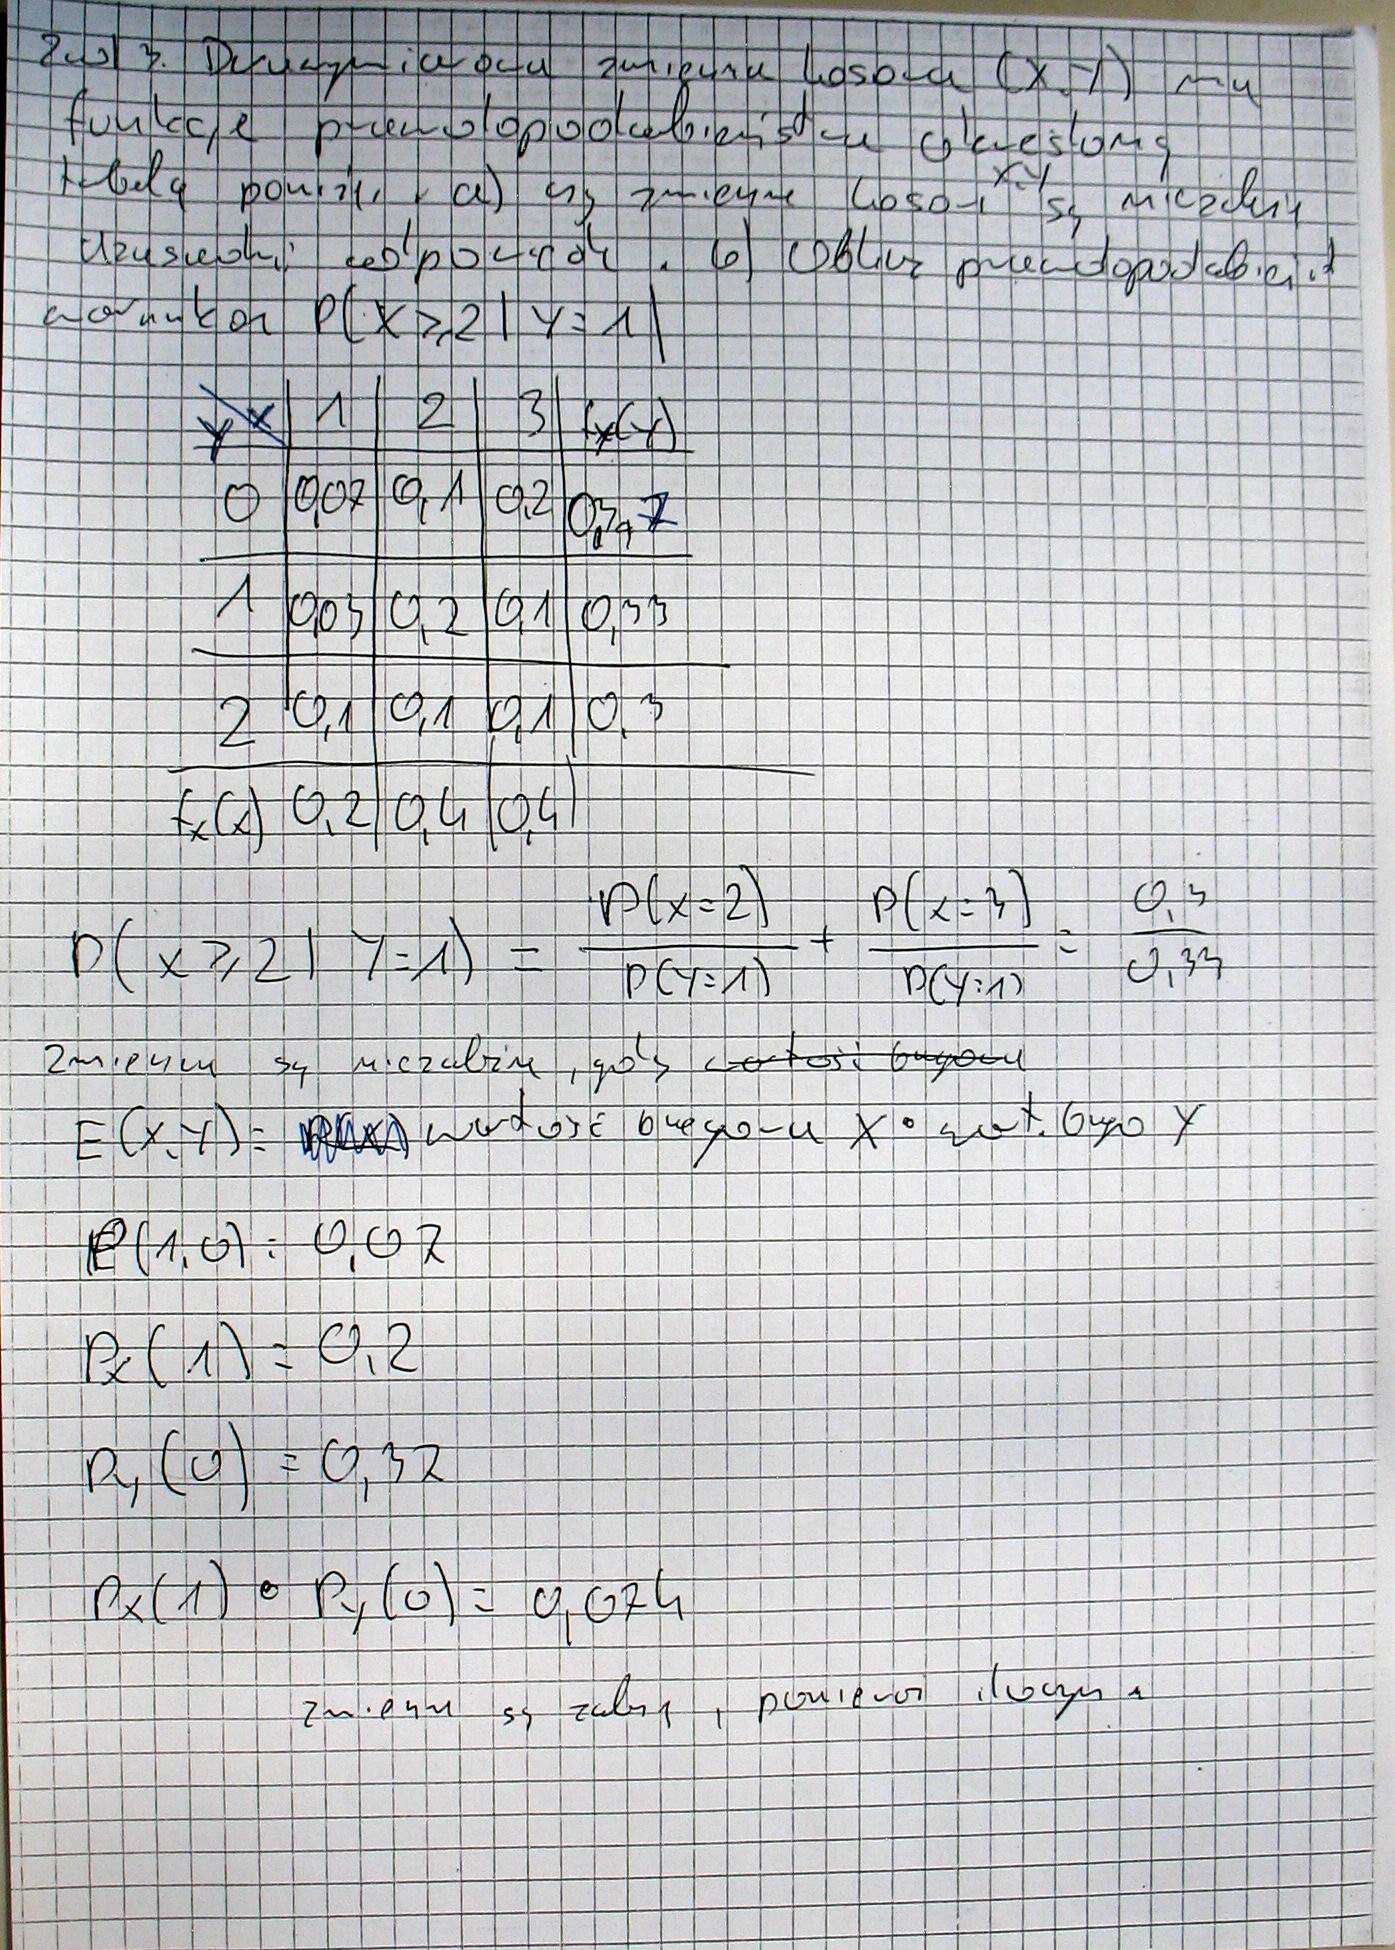 Zad 3. Dwuwymiarowa zmienna losowa (X,Y) ma
funkcję prawdopodobieństwa określoną
tabelą poniżej, a) czy zmienne losowe X,Y są niezależne
uzasadnij odpowiedź. b) Oblicz prawdopodobieńst
warunkow P(X≥2 | Y=1)
Y X | 1 | 2 | 3 |
0 | 0,07 | 0,1 | 0,2 | 0,37
1 | 0,03 | 0,2 | 0,1 | 0,33
2 | 0,1 | 0,1 | 0,1 | 0,3
fx(x) 0,2 | 0,4 | 0,4
P(X≥2 | Y=1) = P(X=2)/P(Y=1) + P(X=3)/P(Y=1) = 0,3/0,33
zmienne są niezależne, gdy
E(X,Y) = wartość oczekiwana X • wart. Y
P(1,0) = 0,07
Px(1) = 0,2
Py(0) = 0,37
Px(1) • Py(0) = 0,074
zmienne są zależne, ponieważ iloczyn